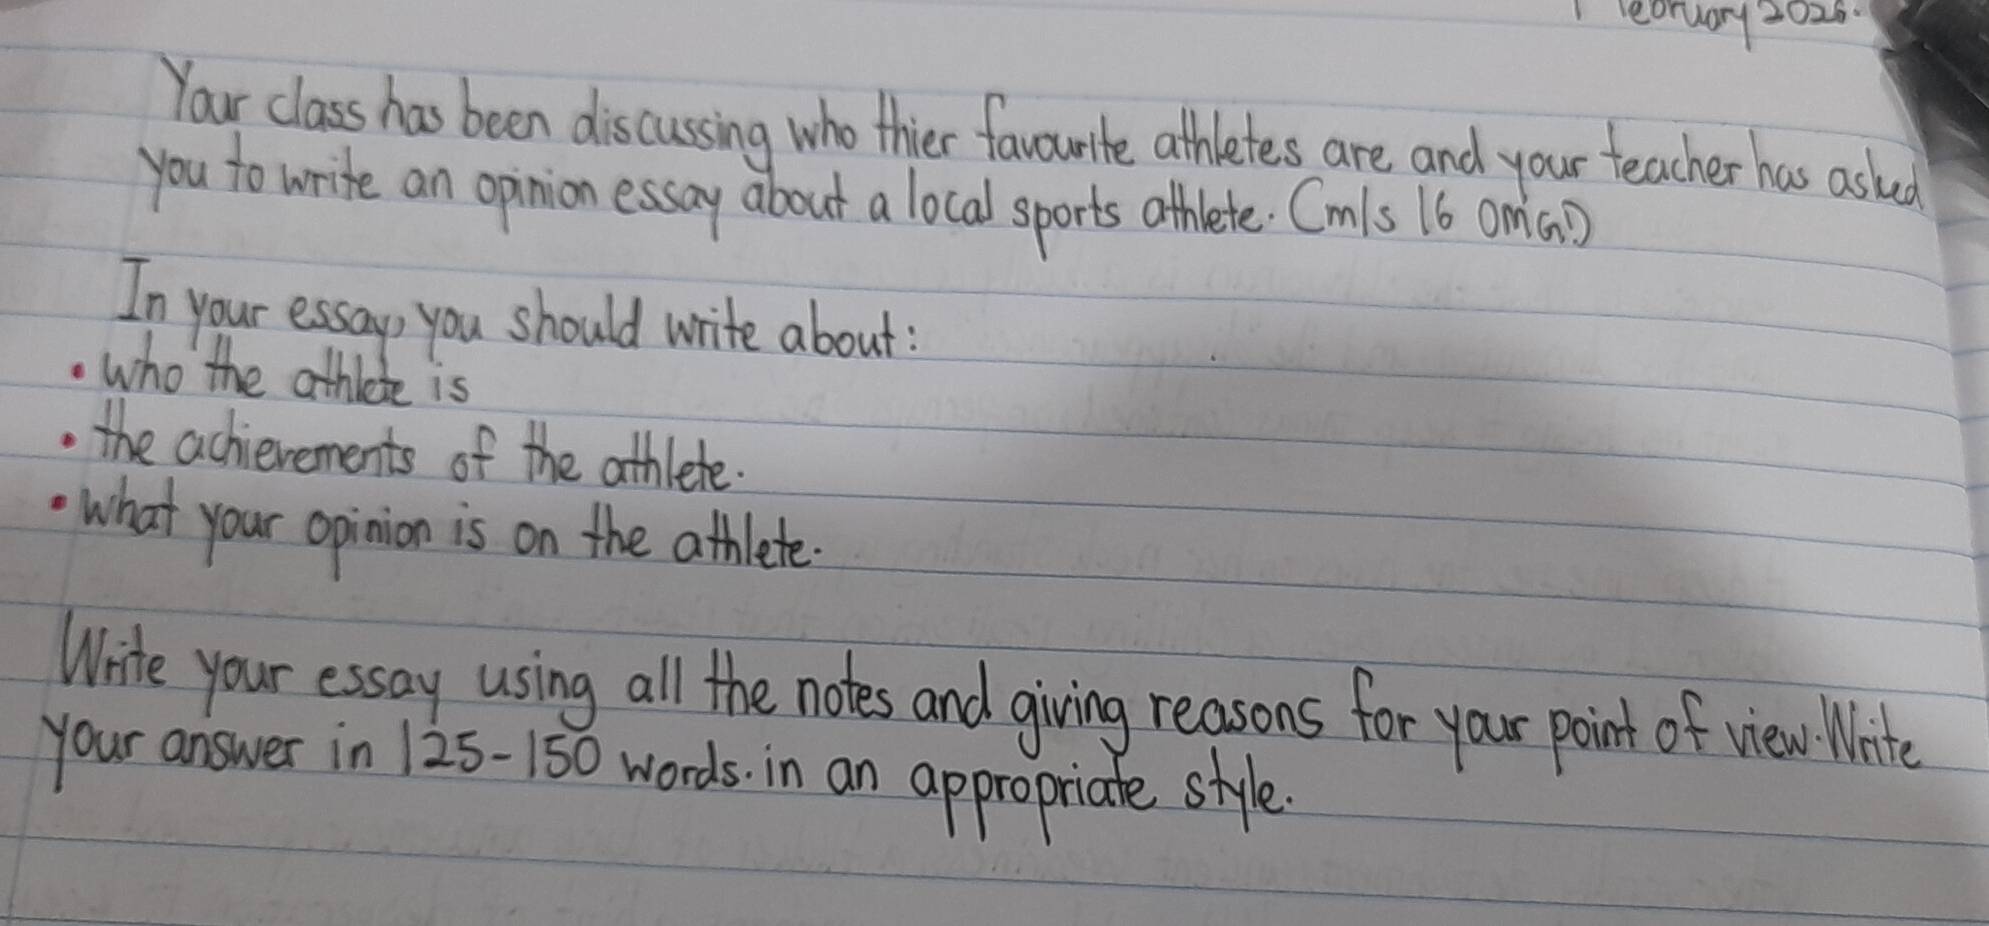 February 2026.
Your class has been discussing who thier favourite athletes are and your teacher has asked
you to write an opinion essay about a local sports athlete. (m/s 16 OMG!)
In your essay, you should write about:
• who the athlete is
• the achievements of the athlete.
• what your opinion is on the athlete.
Write your essay using all the notes and giving reasons for your point of view. Write
your answer in 125-150 words. in an appropriate style.